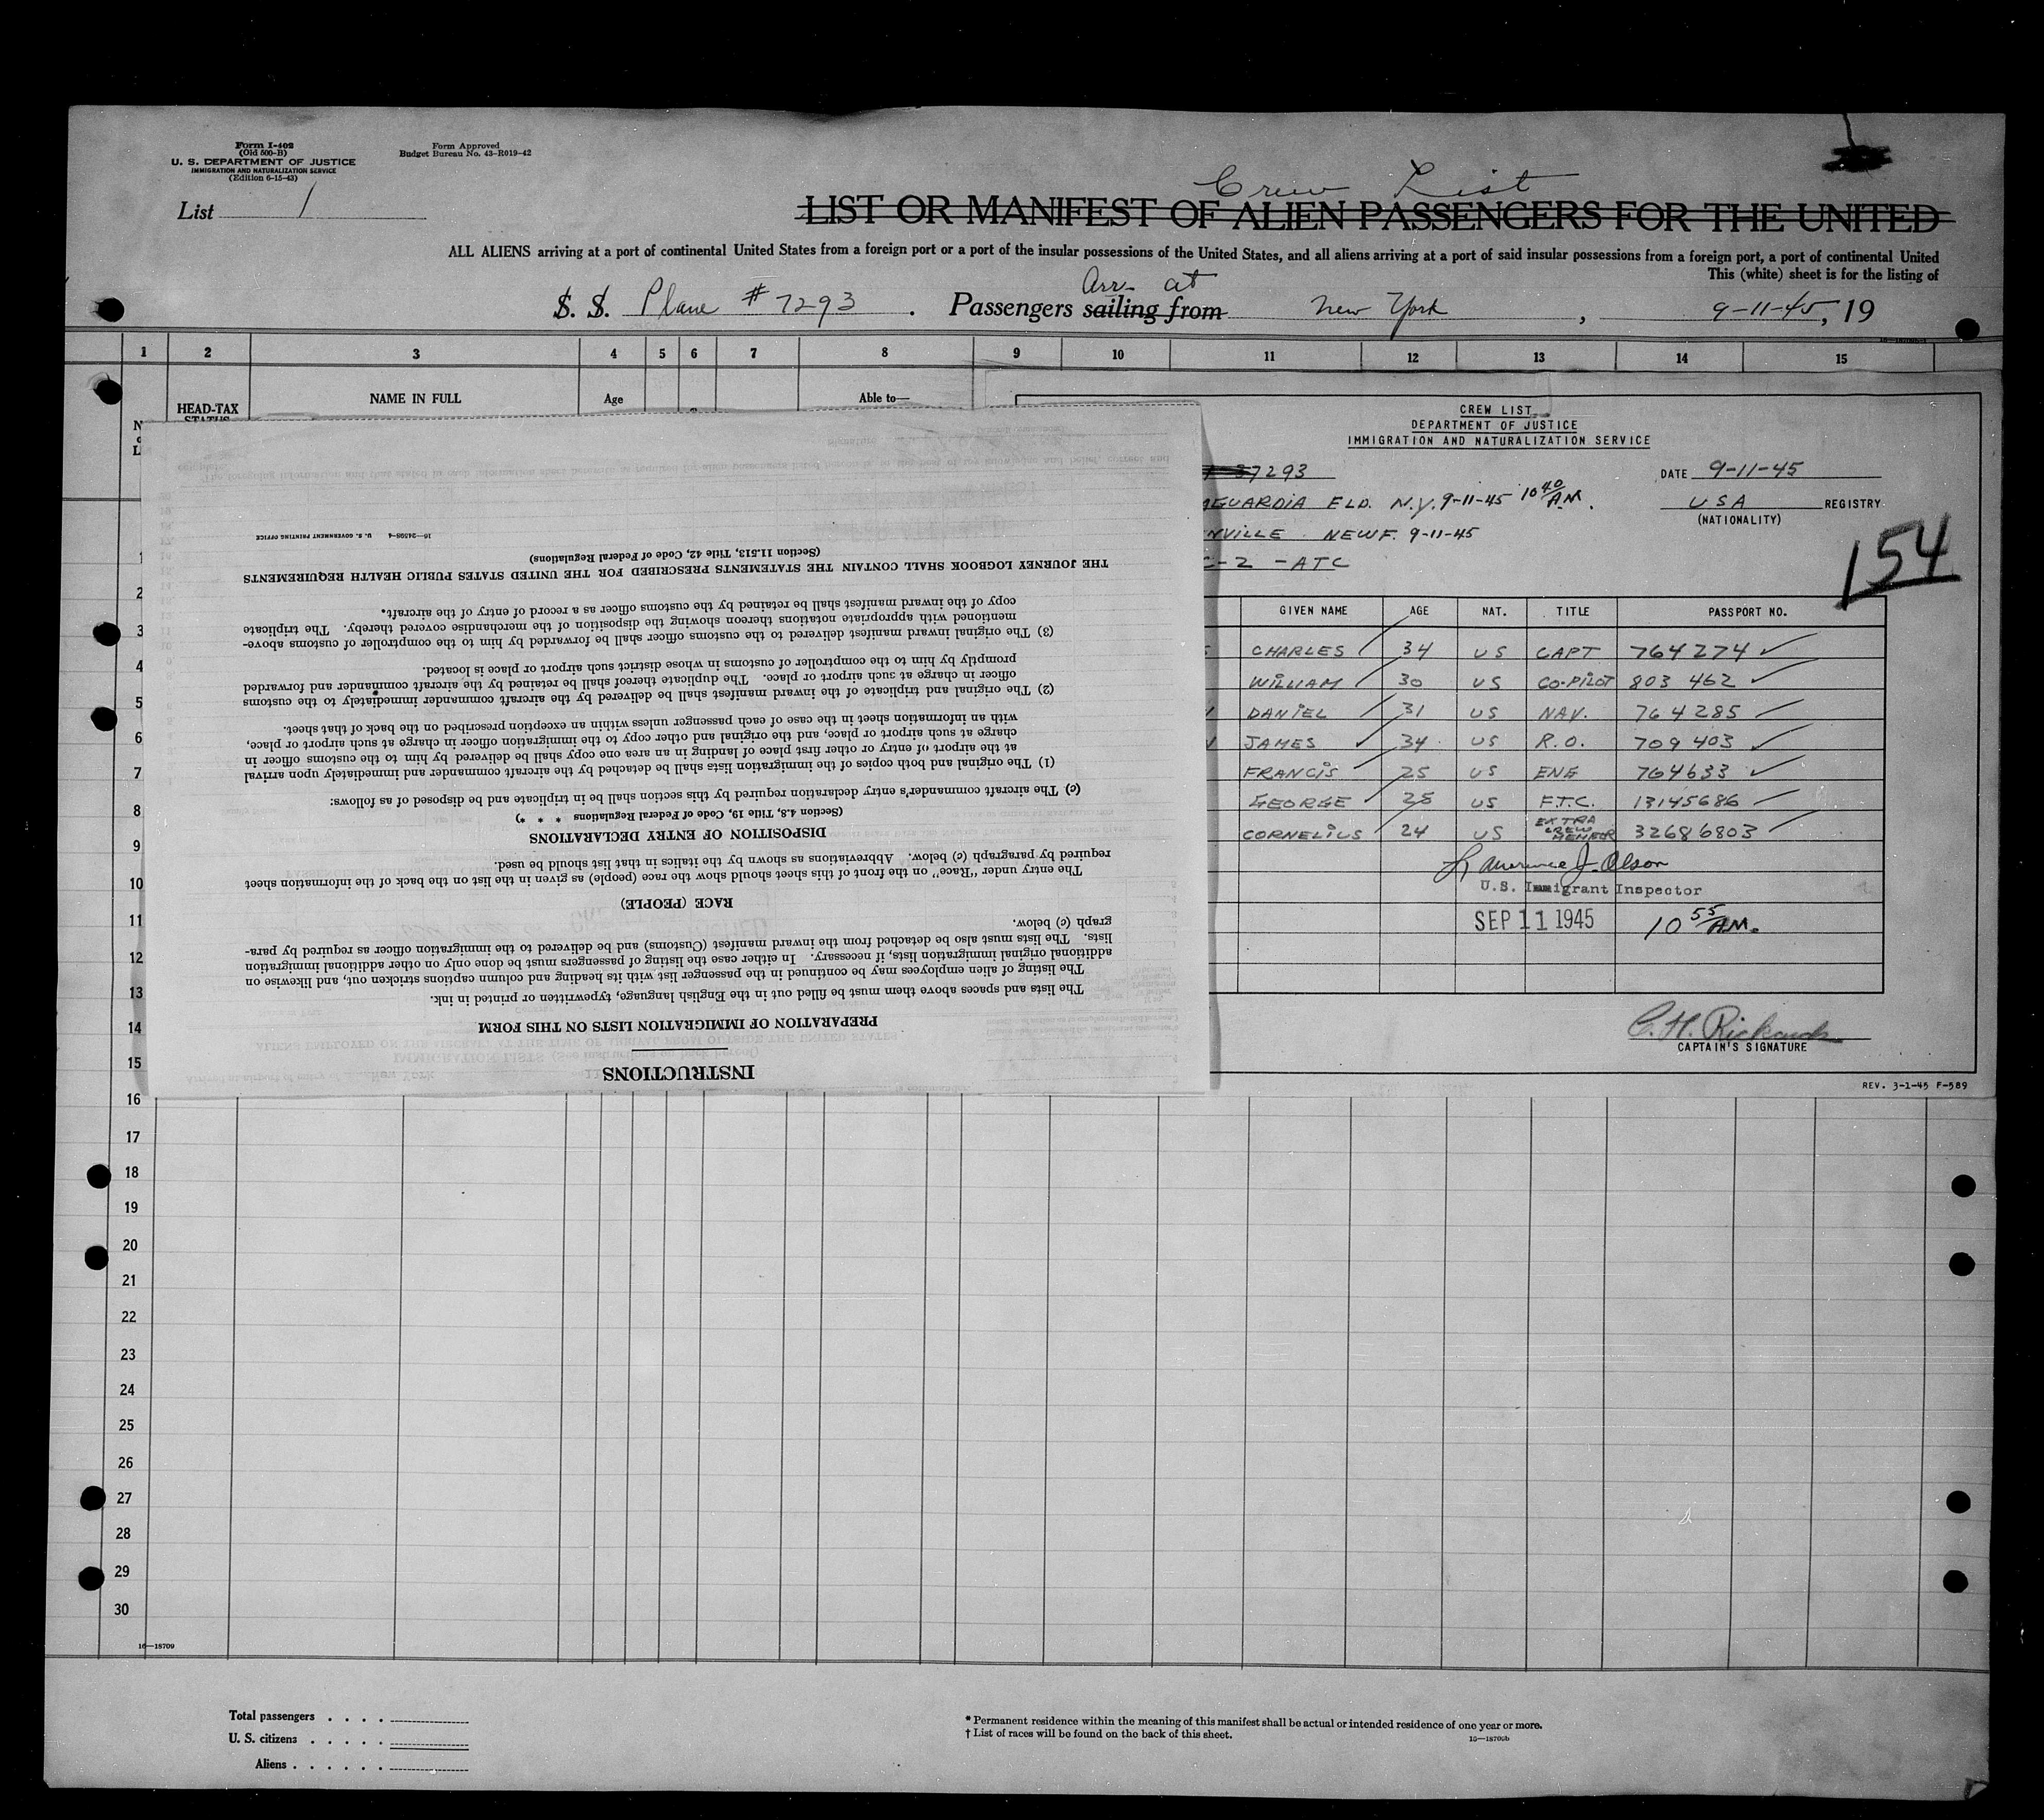 Form I-402
(Old 500-B)
U. S. DEPARTMENT OF JUSTICE
IMMIGRATION AND NATURALIZATION SERVICE
(Edition 6-15-43)
Form Approved
Budget Bureau No. 43-R019-42
List 1
Crew List
LIST OR MANIFEST OF ALIEN PASSENGERS FOR THE UNITED
ALL ALIENS arriving at a port of continental United States from a foreign port or a port of the insular possessions of the United States, and all aliens arriving at a port of said insular possessions from a foreign port, a port of continental United
This (white) sheet is for the listing of
Arr. at
S. S. Plane # 7293 . Passengers sailing from New York , 9-11-45, 19
1 2 3 4 5 6 7 8 9 10 11 12 13 14 15
HEAD-TAX
STATUS
NAME IN FULL
Age
Able to—
CREW LIST
DEPARTMENT OF JUSTICE
IMMIGRATION AND NATURALIZATION SERVICE
7293
DATE 9-11-45
GUARDIA FLD. N.Y. 9-11-45 10 40/AM.
USA REGISTRY
(NATIONALITY)
NVILLE NEWF. 9-11-45
C-2 -ATC
154
GIVEN NAME AGE NAT. TITLE PASSPORT NO.
CHARLES 34 US CAPT 764274
WILLIAM 30 US CO-PILOT 803 462
DANIEL 31 US NAV. 764285
JAMES 34 US R.O. 709 403
FRANCIS 25 US ENG 764633
GEORGE 25 US F.T.C. 13145686
CORNELIUS 24 US EXTRA CREW MEMBER 32686803
Lawrence J. Olson
U.S. Immigrant Inspector
SEP 11 1945 10 55/AM.
C. H. Rickards
CAPTAIN'S SIGNATURE
REV. 3-1-45 F-589
INSTRUCTIONS
PREPARATION OF IMMIGRATION LISTS ON THIS FORM
The lists and spaces above them must be filled out in the English language, typewritten or printed in ink.
The listing of alien employees may be continued in the passenger list with its heading and column captions stricken out, and likewise on
additional original immigration lists, if necessary. In either case the listing of passengers must be done only on other additional immigration
lists. The lists must also be detached from the inward manifest (Customs) and be delivered to the immigration officer as required by para-
graph (c) below.
RACE (PEOPLE)
The entry under "Race" on the front of this sheet should show the race (people) as given in the list on the back of the information sheet
required by paragraph (c) below. Abbreviations as shown by the italics in that list should be used.
DISPOSITION OF ENTRY DECLARATIONS
(Section 4.8, Title 19, Code of Federal Regulations * * *)
(c) The aircraft commander's entry declaration required by this section shall be in triplicate and be disposed of as follows:
(1) The original and both copies of the immigration lists shall be detached by the aircraft commander and immediately upon arrival
at the airport of entry or other first place of landing in an area one copy shall be delivered by him to the customs officer in
charge at such airport or place, and the original and other copy to the immigration officer in charge at such airport or place,
with an information sheet in the case of each passenger unless within an exception prescribed on the back of that sheet.
(2) The original and triplicate of the inward manifest shall be delivered by the aircraft commander immediately to the customs
officer in charge at such airport or place. The duplicate thereof shall be retained by the aircraft commander and forwarded
promptly by him to the comptroller of customs in whose district such airport or place is located.
(3) The original inward manifest delivered to the customs officer shall be forwarded by him to the comptroller of customs above-
mentioned with appropriate notations thereon showing the disposition of the merchandise covered thereby. The triplicate
copy of the inward manifest shall be retained by the customs officer as a record of entry of the aircraft.
THE JOURNEY LOGBOOK SHALL CONTAIN THE STATEMENTS PRESCRIBED FOR THE UNITED STATES PUBLIC HEALTH REQUIREMENTS
(Section 11.513, Title 42, Code of Federal Regulations)
16—24598-4 U. S. GOVERNMENT PRINTING OFFICE
1
2
3
4
5
6
7
8
9
10
11
12
13
14
15
16
17
18
19
20
21
22
23
24
25
26
27
28
29
30
16—18709
Total passengers . . . .
U. S. citizens . . . . .
Aliens . . . . . .
* Permanent residence within the meaning of this manifest shall be actual or intended residence of one year or more.
† List of races will be found on the back of this sheet.
16—18709b